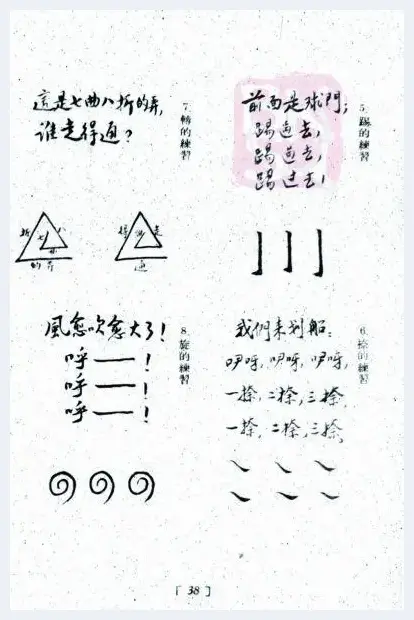 5. 踢的練習
前面是球門；
踢過去，
踢過去，
踢过去！
6. 捺的練習
我們来划船：
咿呀，咿呀，咿呀，
一捺，二捺，三捺，
一捺，二捺，三捺，
7. 轉的練習
這是七曲八折的弄，
誰走得通？
的弄
通
8. 旋的練習
風愈吹愈大了！
呼——！
呼——！
呼——！
[ 38 ]